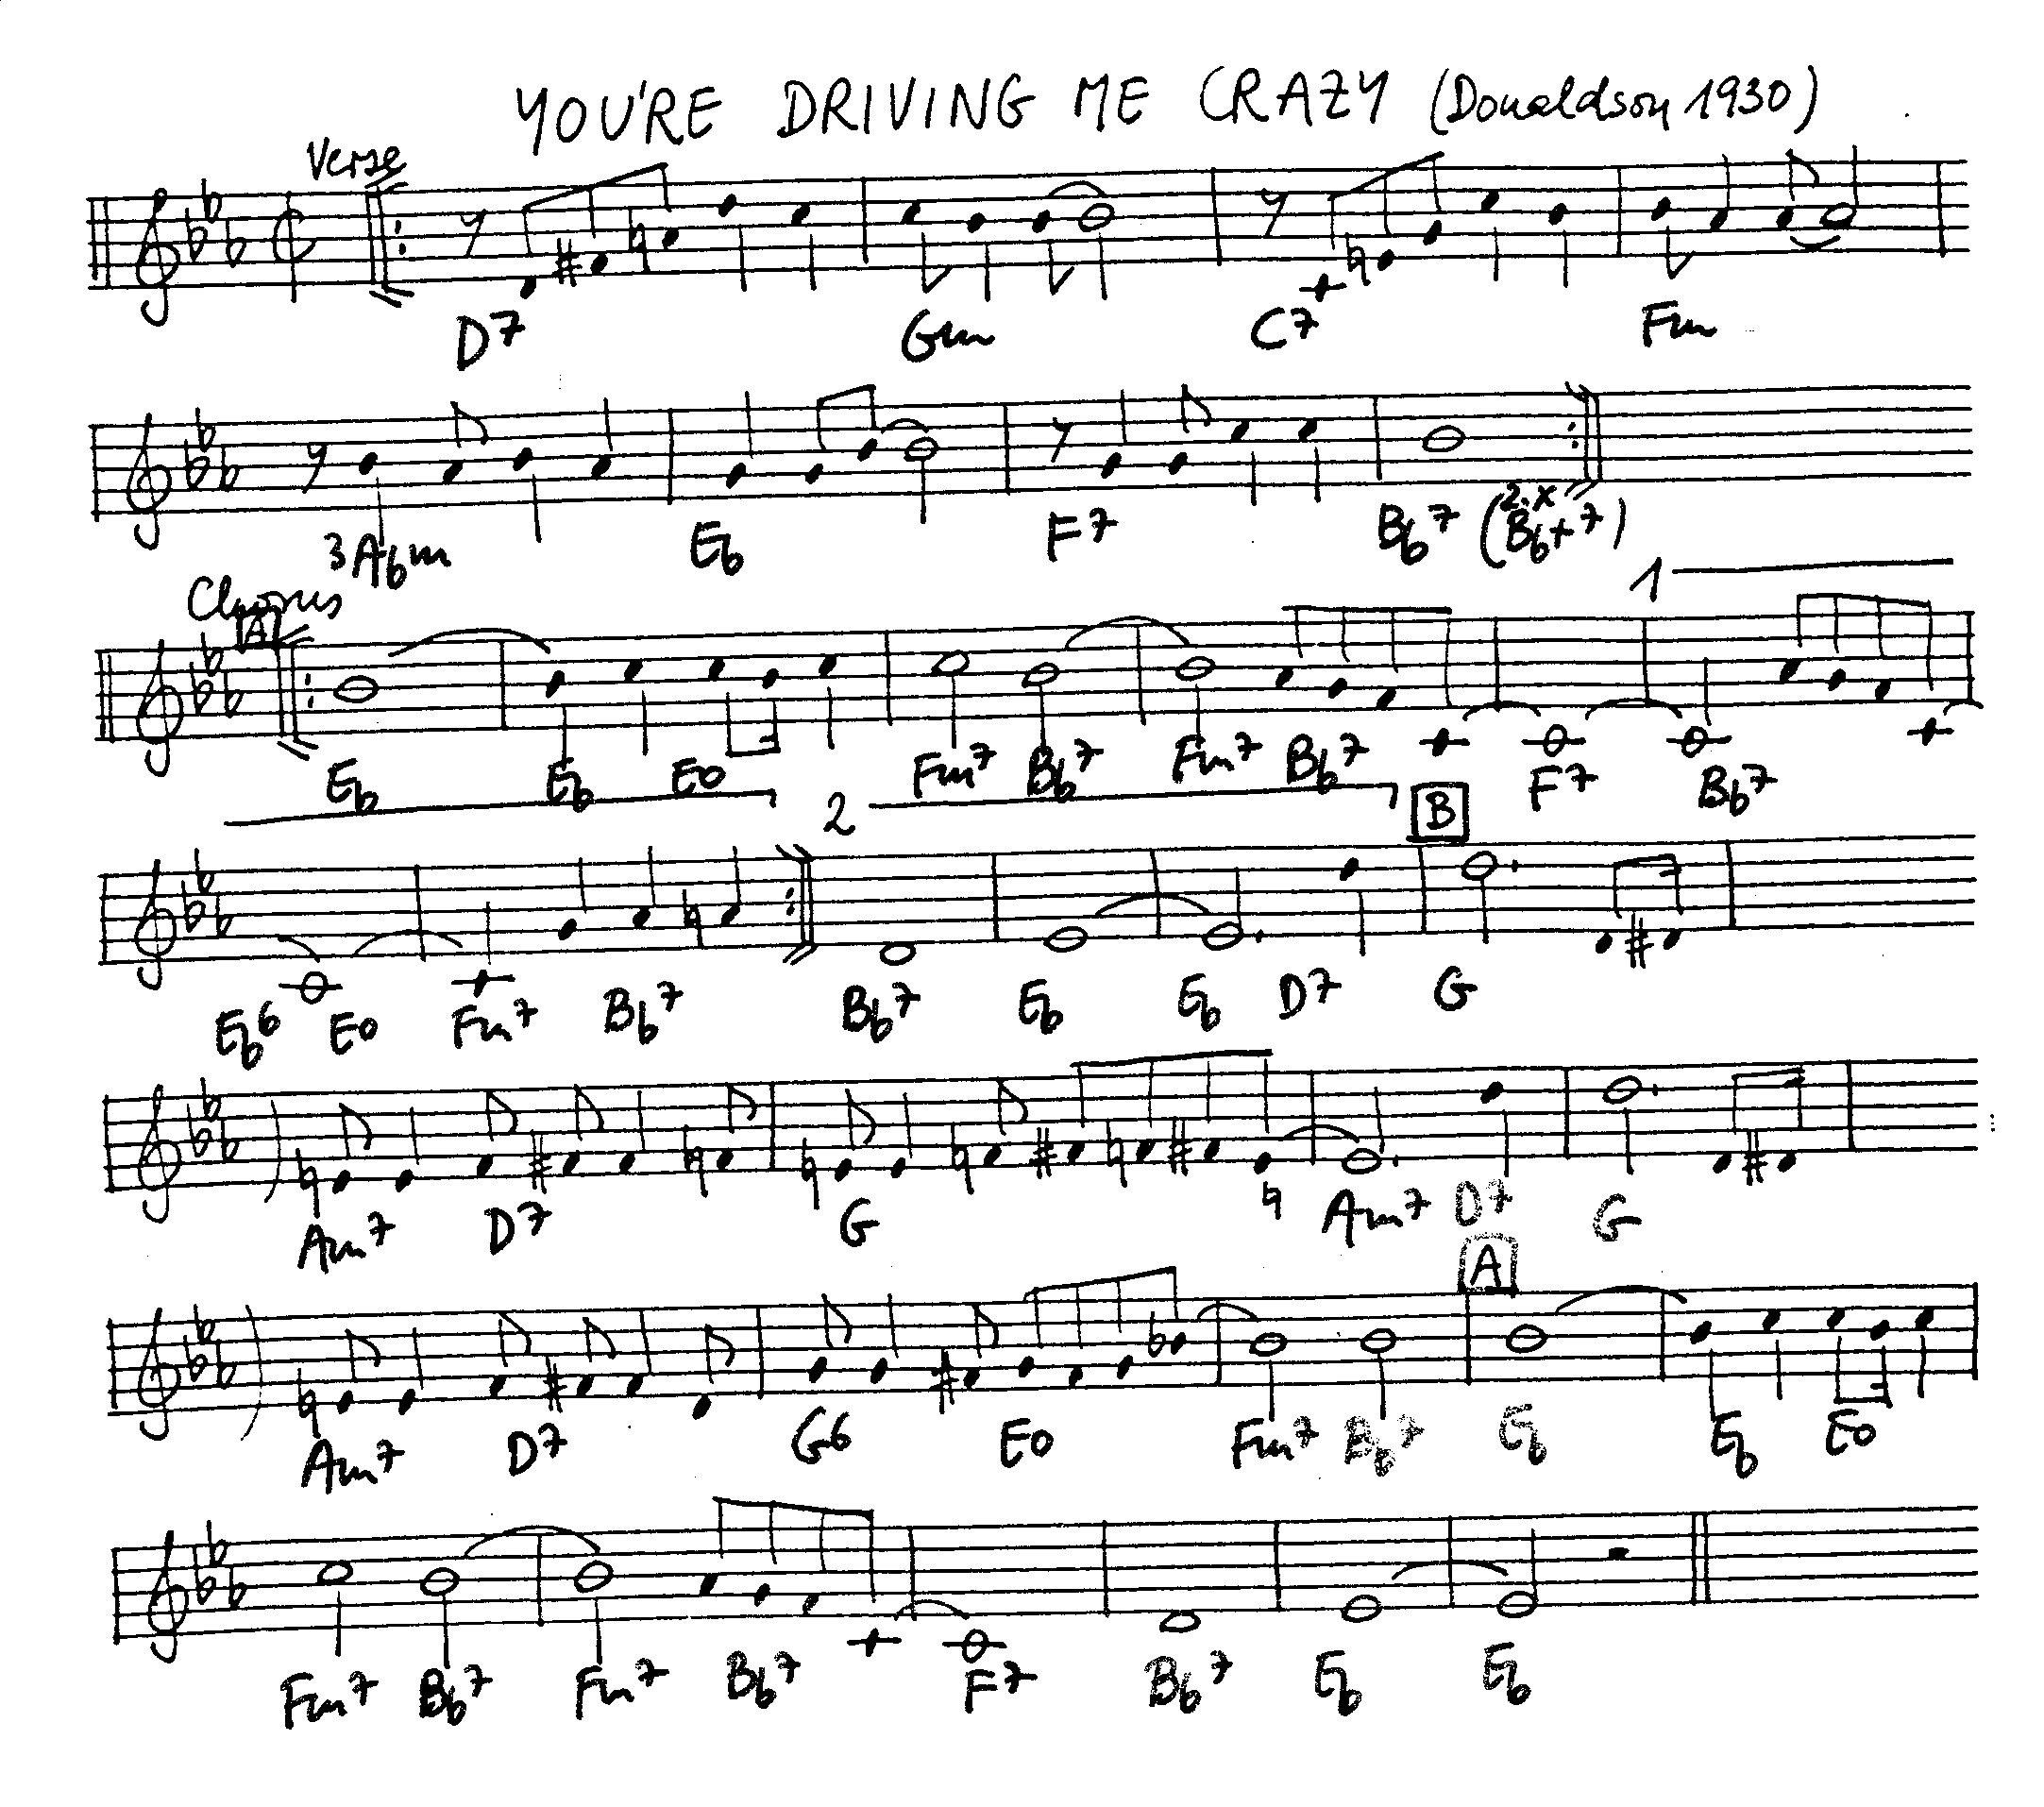 YOU'RE DRIVING ME CRAZY (Donaldson 1930)
Verse
D7 Gm C7 Fm
3A♭m E♭ F7 B♭7 (2.x B♭+7)
Chorus
A 1
E♭ E♭ Eo Fm7 B♭7 Fm7 B♭7 F7 B♭7
2 B
E♭6 Eo Fm7 B♭7 B♭7 E♭ E♭ D7 G
Am7 D7 G Am7 D7 G
A
Am7 D7 G6 Eo Fm7 B♭7 E♭ E♭ Eo
Fm7 B♭7 Fm7 B♭7 F7 B♭7 E♭ E♭